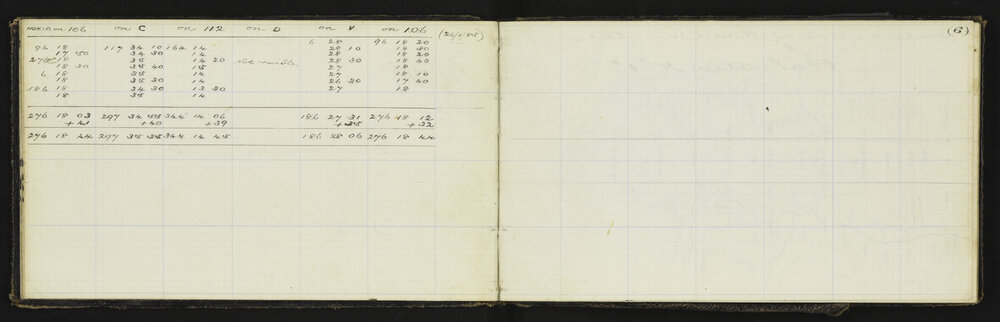 HOKIO on 106 on C on 112 on D on V on 106 (26/1/85) (6)
6 28 96 18 20
96 18 117 34 10 164 14 28 10 18 30
17 50 34 30 14 28 18 20
276 18 35 14 20 Not visible 28 30 18 40
18 30 35 40 15 27 18
6 18 35 14 27 18 10
18 35 30 14 26 30 17 40
186 18 34 30 13 30 27 18
18 35 14
276 18 03 297 34 55 344 14 06 186 27 31 276 18 12
+41 +40 +39 +35 +32
276 18 44 297 35 35 344 14 45 186 28 06 276 18 44